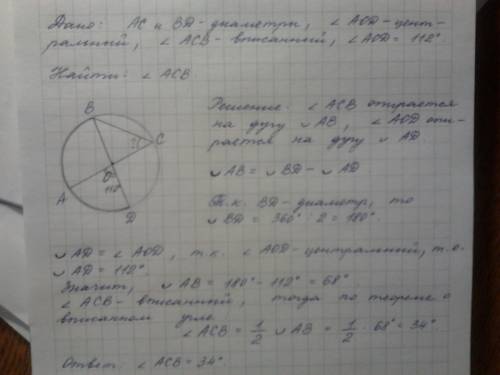 Дано: AC и BD - диаметры, ∠AOD - цент-
ральный, ∠ACB - вписанный, ∠AOD = 112°
Найти: ∠ACB
Решение: ∠ACB опирается
на дугу ◡AB, ∠AOD опи-
рается на дугу ◡AD.
◡AB = ◡BD - ◡AD
Т.к. BD - диаметр, то
◡BD = 360° : 2 = 180°.
B
C
?
O
112°
A
D
◡AD = ∠AOD, т.к. ∠AOD - центральный, т.о.
◡AD = 112°
Значит, ◡AB = 180° - 112° = 68°
∠ACB - вписанный, тогда по теореме о
вписанном угле
∠ACB = 1/2 ◡AB = 1/2 · 68° = 34°
Ответ: ∠ACB = 34°